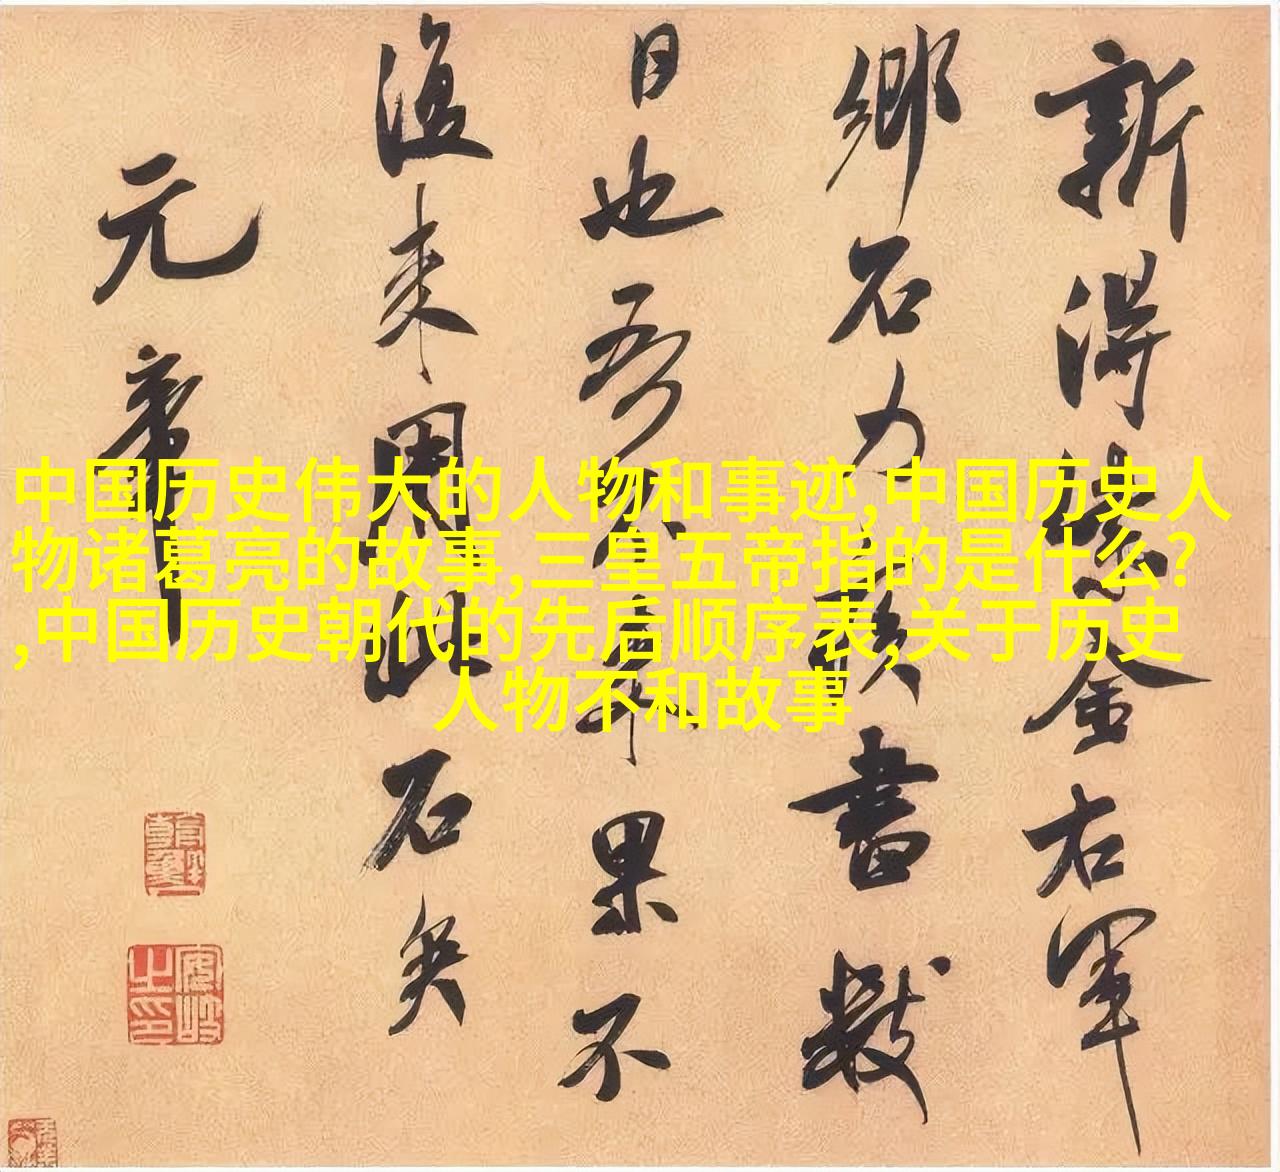 新得紫金右軍
鄉石力疾書數
日也吾不來果不
復來用此石矣
元章
中国历史伟大的人物和事迹,中国历史人
物诸葛亮的故事,三皇五帝指的是什么?
,中国历史朝代的先后顺序表,关于历史
人物不和故事